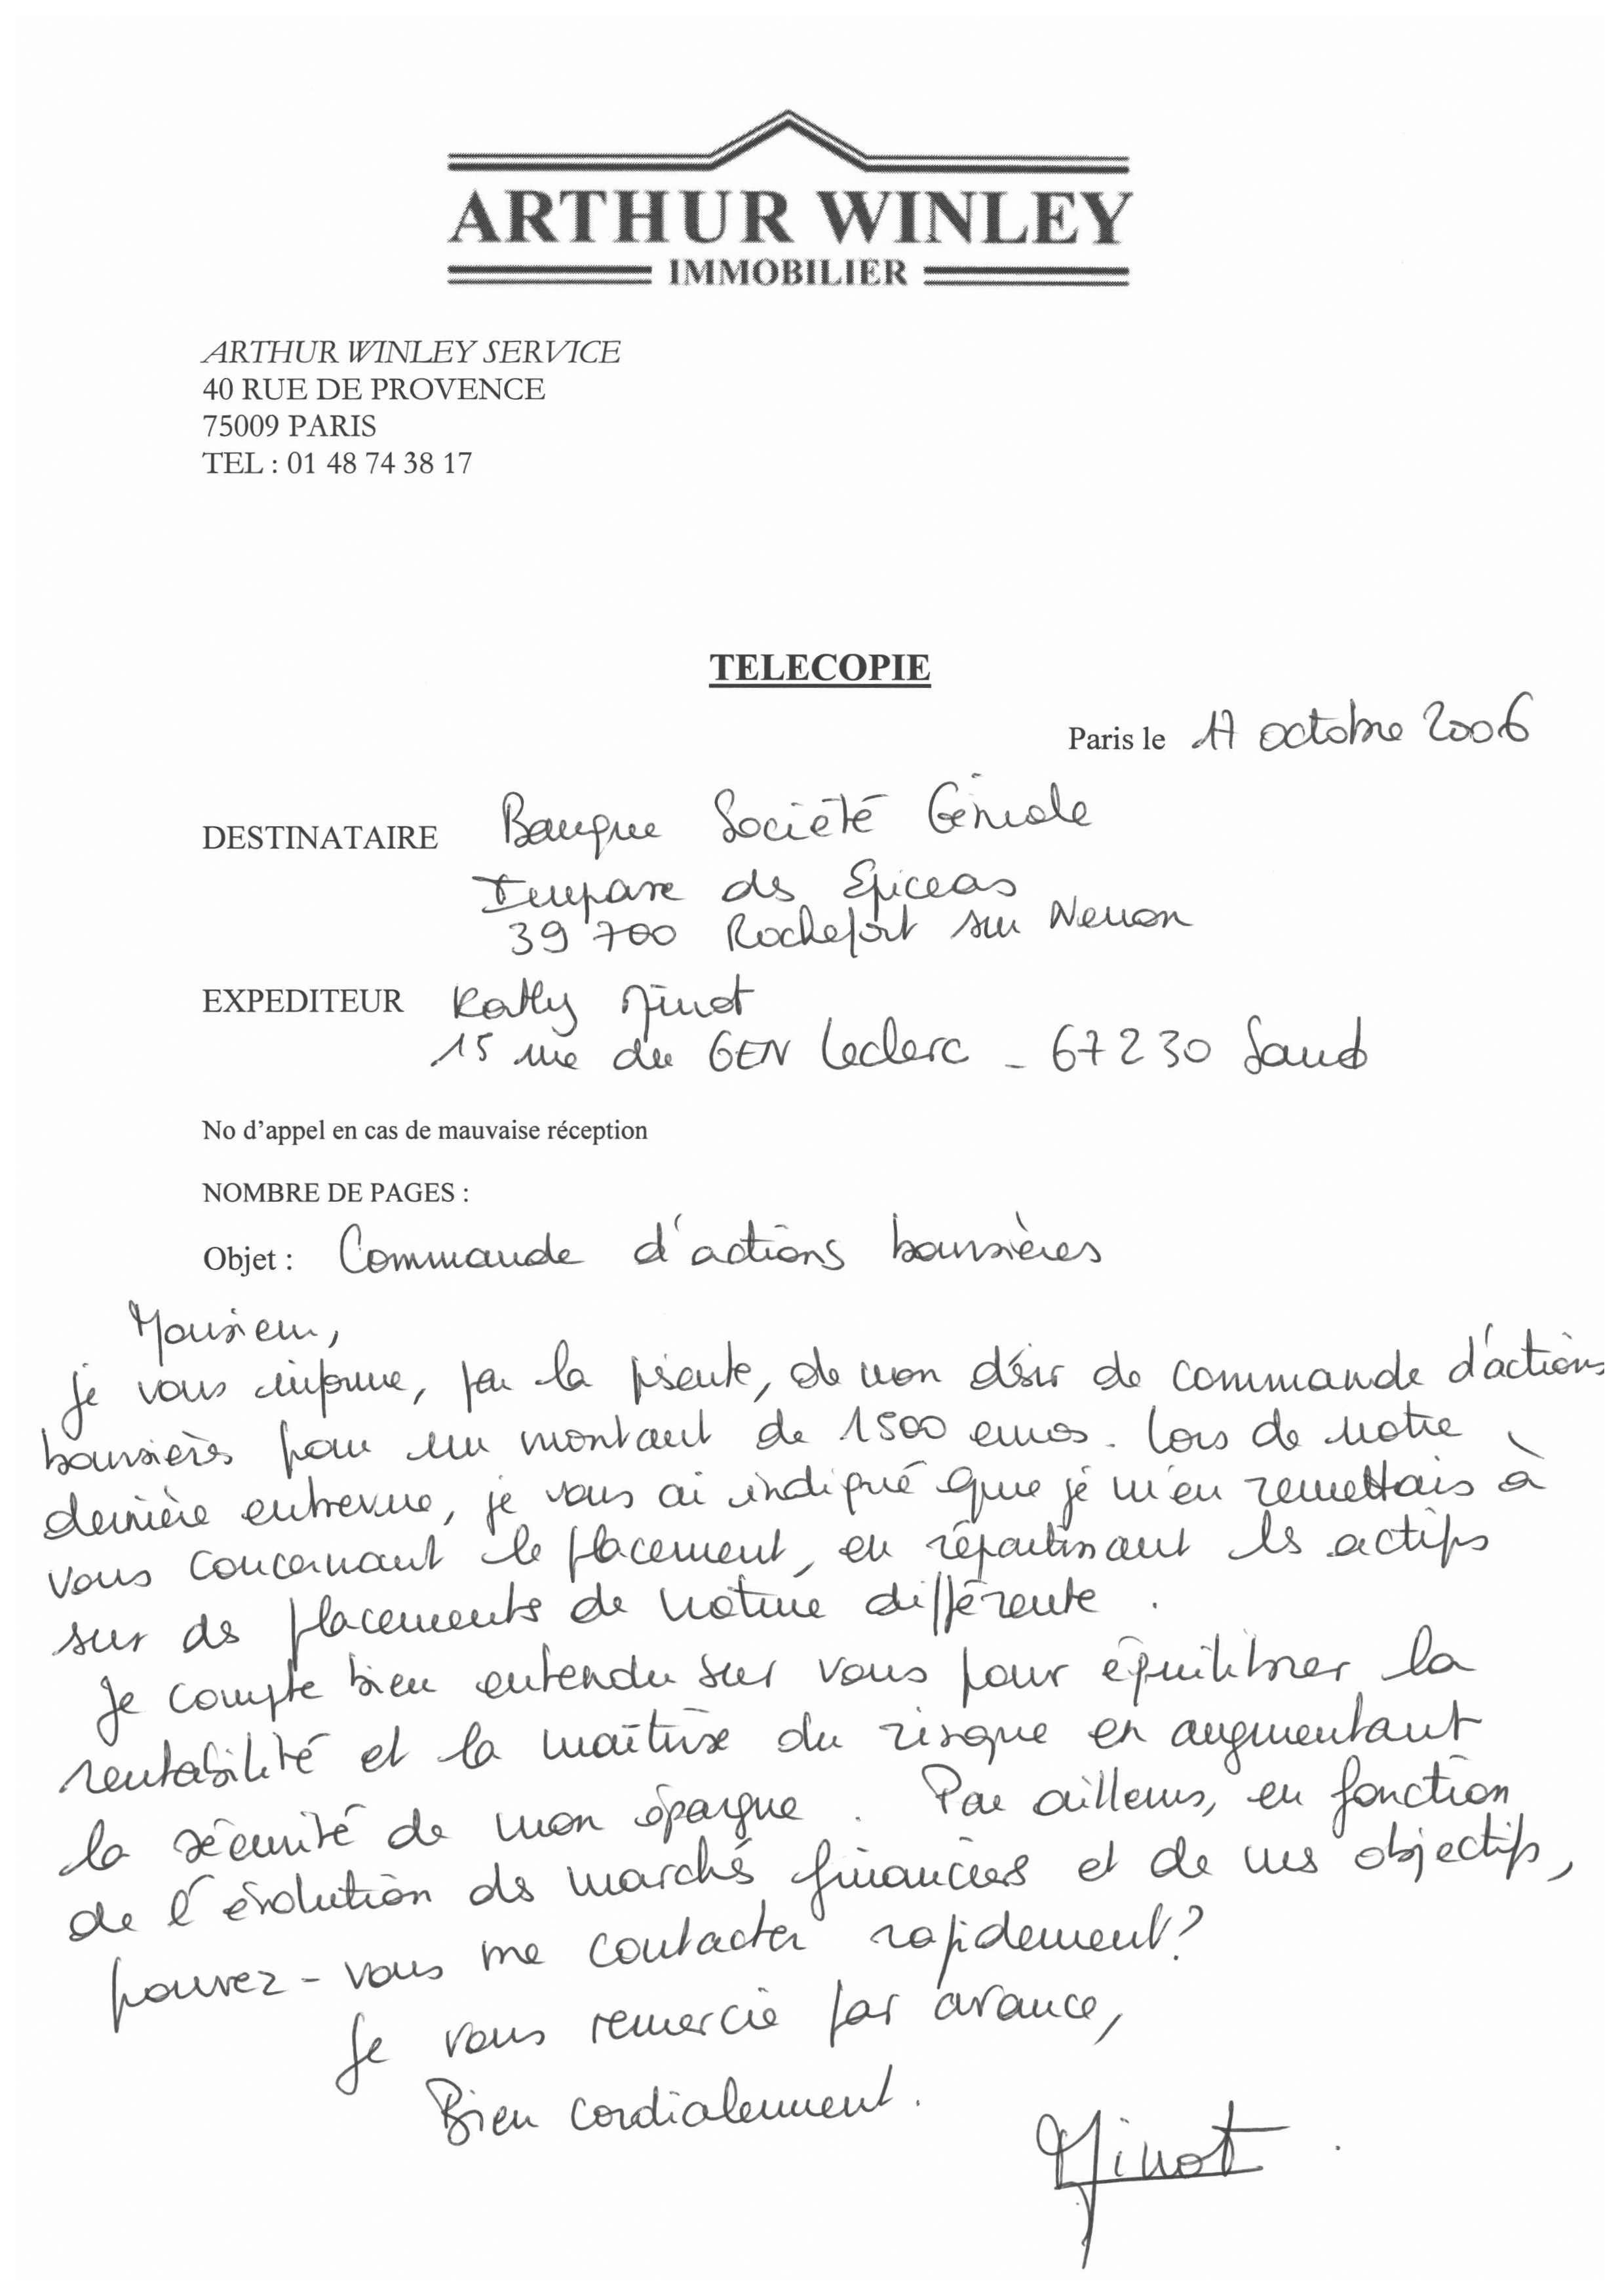 ARTHUR WINLEY
IMMOBILIER
ARTHUR WINLEY SERVICE
40 RUE DE PROVENCE
75009 PARIS
TEL : 01 48 74 38 17
TELECOPIE
Paris le 17 octobre 2006
DESTINATAIRE Banque Société Générale
Impasse des Epiceas
39 700 Rochefort sur Nenon
EXPEDITEUR Kathy Minot
15 rue du GEN Leclerc - 67230 Sand
No d'appel en cas de mauvaise réception
NOMBRE DE PAGES :
Objet : Commande d'actions boursières
Monsieur,
je vous informe, par la présente, de mon désir de commande d'actions
boursières pour un montant de 1500 euros. Lors de notre
dernière entrevue, je vous ai indiqué que je m'en remettais à
vous concernant le placement, en répartissant les actifs
sur des placements de nature différente.
Je compte bien entendu sur vous pour équilibrer la
rentabilité et la maîtrise du risque en augmentant
la sécurité de mon épargne. Par ailleurs, en fonction
de l'évolution des marchés financiers et de mes objectifs,
pouvez-vous me contacter rapidement?
Je vous remercie par avance,
Bien cordialement.
Minot